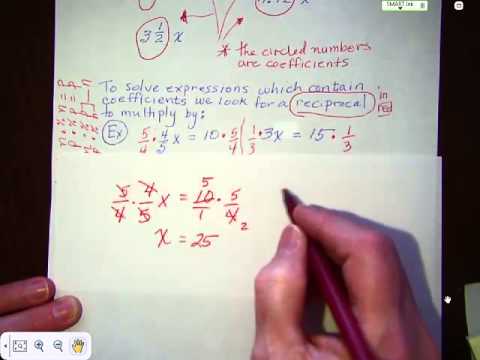 SMART Ink
3 1/2 x
* the circled numbers
are coefficients
To solve expressions which contain
coefficients we look for a reciprocal in red
to multiply by:
Ex 5/4 · 4/5 x = 10 · 5/4 | 1/3 · 3x = 15 · 1/3
5/4 · 4/5 x = 5 10/1 · 5/4 2
x = 25